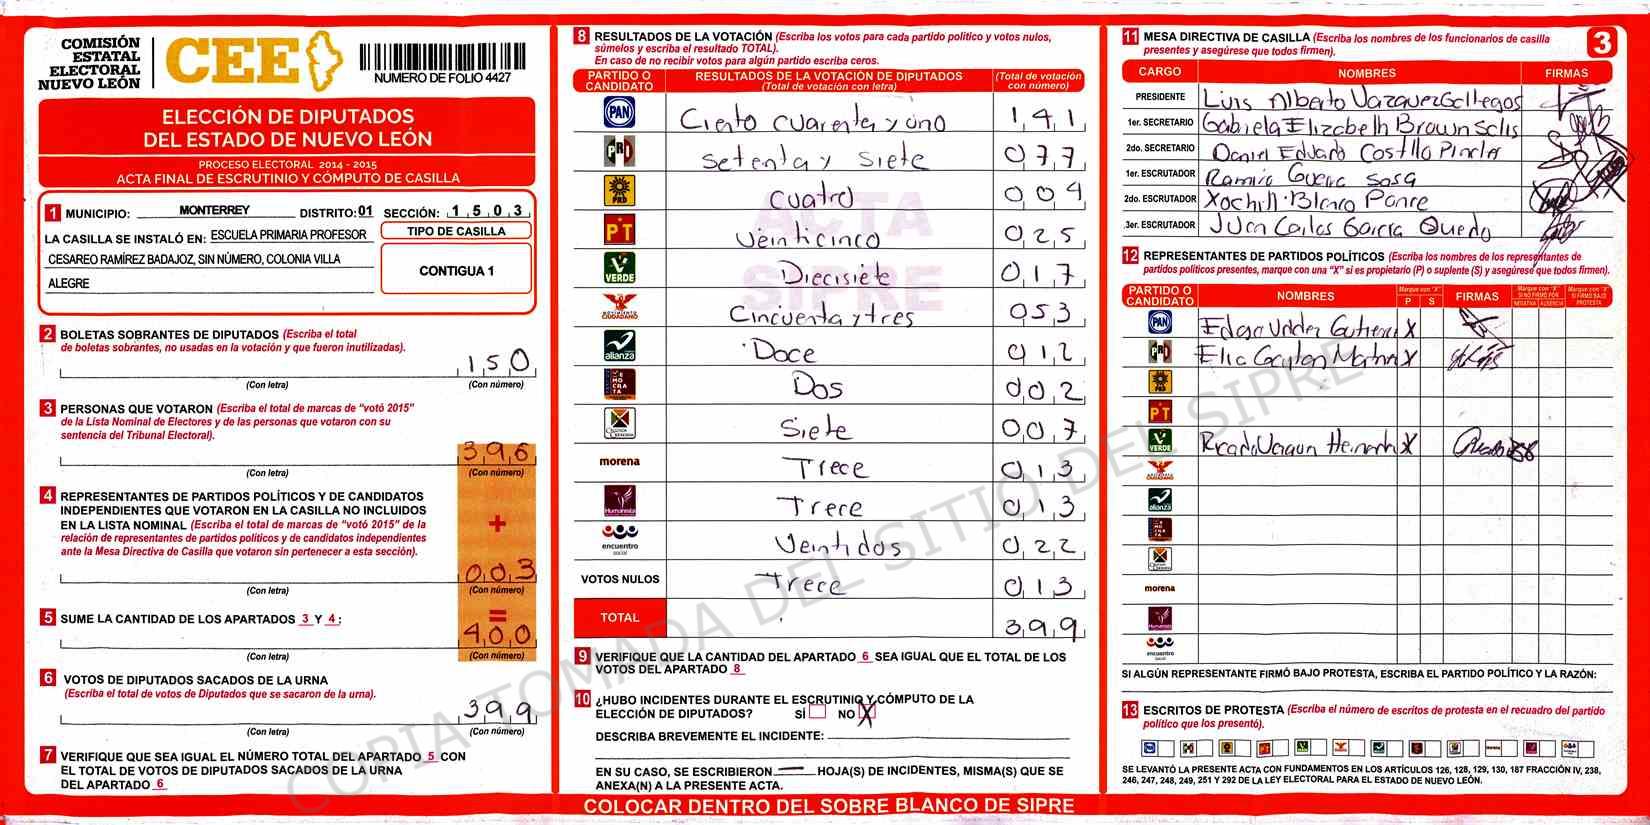 COMISIÓN
ESTATAL
ELECTORAL
NUEVO LEÓN
CEE
NUMERO DE FOLIO 4427
ELECCIÓN DE DIPUTADOS
DEL ESTADO DE NUEVO LEÓN
PROCESO ELECTORAL 2014 - 2015
ACTA FINAL DE ESCRUTINIO Y CÓMPUTO DE CASILLA
1 MUNICIPIO: MONTERREY DISTRITO:01 SECCIÓN: 1503
LA CASILLA SE INSTALÓ EN: ESCUELA PRIMARIA PROFESOR
CESAREO RAMÍREZ BADAJOZ, SIN NÚMERO, COLONIA VILLA
ALEGRE
TIPO DE CASILLA
CONTIGUA 1
2 BOLETAS SOBRANTES DE DIPUTADOS (Escriba el total
de boletas sobrantes, no usadas en la votación y que fueron inutilizadas).
150
(Con letra) (Con número)
3 PERSONAS QUE VOTARON (Escriba el total de marcas de "votó 2015"
de la Lista Nominal de Electores y de las personas que votaron con su
sentencia del Tribunal Electoral).
396
(Con letra) (Con número)
4 REPRESENTANTES DE PARTIDOS POLÍTICOS Y DE CANDIDATOS
INDEPENDIENTES QUE VOTARON EN LA CASILLA NO INCLUIDOS
EN LA LISTA NOMINAL (Escriba el total de marcas de "votó 2015" de la
relación de representantes de partidos políticos y de candidatos independientes
ante la Mesa Directiva de Casilla que votaron sin pertenecer a esta sección).
+
003
(Con letra) (Con número)
5 SUME LA CANTIDAD DE LOS APARTADOS 3 Y 4:
=
400
(Con letra) (Con número)
6 VOTOS DE DIPUTADOS SACADOS DE LA URNA
(Escriba el total de votos de Diputados que se sacaron de la urna).
399
(Con letra) (Con número)
7 VERIFIQUE QUE SEA IGUAL EL NÚMERO TOTAL DEL APARTADO 5 CON
EL TOTAL DE VOTOS DE DIPUTADOS SACADOS DE LA URNA
DEL APARTADO 6
8 RESULTADOS DE LA VOTACIÓN (Escriba los votos para cada partido político y votos nulos,
súmelos y escriba el resultado TOTAL).
En caso de no recibir votos para algún partido escriba ceros.
PARTIDO O CANDIDATO RESULTADOS DE LA VOTACIÓN DE DIPUTADOS (Total de votación con letra) (Total de votación con número)
PAN Ciento cuarenta y uno 141
PRD Setenta y siete 077
PRD cuatro 004
PT Veinticinco 025
VERDE Diecisiete 017
MOVIMIENTO CIUDADANO Cincuenta y tres 053
alianza Doce 012
DEMOCRATA Dos 002
Siete 007
morena Trece 013
Humanista Trece 013
encuentro social Veintidos 022
VOTOS NULOS Trece 013
TOTAL 399
ACTA
SIPRE
9 VERIFIQUE QUE LA CANTIDAD DEL APARTADO 6 SEA IGUAL QUE EL TOTAL DE LOS
VOTOS DEL APARTADO 8
10 ¿HUBO INCIDENTES DURANTE EL ESCRUTINIO Y CÓMPUTO DE LA
ELECCIÓN DE DIPUTADOS? SÍ NO X
DESCRIBA BREVEMENTE EL INCIDENTE:
EN SU CASO, SE ESCRIBIERON HOJA(S) DE INCIDENTES, MISMA(S) QUE SE
ANEXA(N) A LA PRESENTE ACTA.
COLOCAR DENTRO DEL SOBRE BLANCO DE SIPRE
11 MESA DIRECTIVA DE CASILLA (Escriba los nombres de los funcionarios de casilla
presentes y asegúrese que todos firmen).
3
CARGO NOMBRES FIRMAS
PRESIDENTE Luis Alberto Vazquez Gallegos
1er. SECRETARIO Gabriela Elizabeth Brown Solis
2do. SECRETARIO Daniel Eduardo Costillo
1er. ESCRUTADOR Ramiro Guerra Sosa
2do. ESCRUTADOR Xochitl Blanco Ponce
3er. ESCRUTADOR Juan Carlos Garcia
12 REPRESENTANTES DE PARTIDOS POLÍTICOS (Escriba los nombres de los representantes de
partidos políticos presentes, marque con una "X" si es propietario (P) o suplente (S) y asegúrese que todos firmen).
PARTIDO O CANDIDATO NOMBRES Marque con "X" P S FIRMAS Marque con "X" SI NO FIRMÓ POR NEGATIVA AUSENCIA Marque con "X" SI FIRMÓ BAJO PROTESTA
PAN Edgar X
X
PRD
PT
VERDE X
MOVIMIENTO CIUDADANO
alianza
morena
Humanista
encuentro social
SI ALGÚN REPRESENTANTE FIRMÓ BAJO PROTESTA, ESCRIBA EL PARTIDO POLÍTICO Y LA RAZÓN:
13 ESCRITOS DE PROTESTA (Escriba el número de escritos de protesta en el recuadro del partido
político que los presentó).
SE LEVANTÓ LA PRESENTE ACTA CON FUNDAMENTOS EN LOS ARTÍCULOS 126, 128, 129, 130, 187 FRACCIÓN IV, 238,
246, 247, 248, 249, 251 Y 292 DE LA LEY ELECTORAL PARA EL ESTADO DE NUEVO LEÓN.
COPIA TOMADA DEL SITIO DEL SIPRE